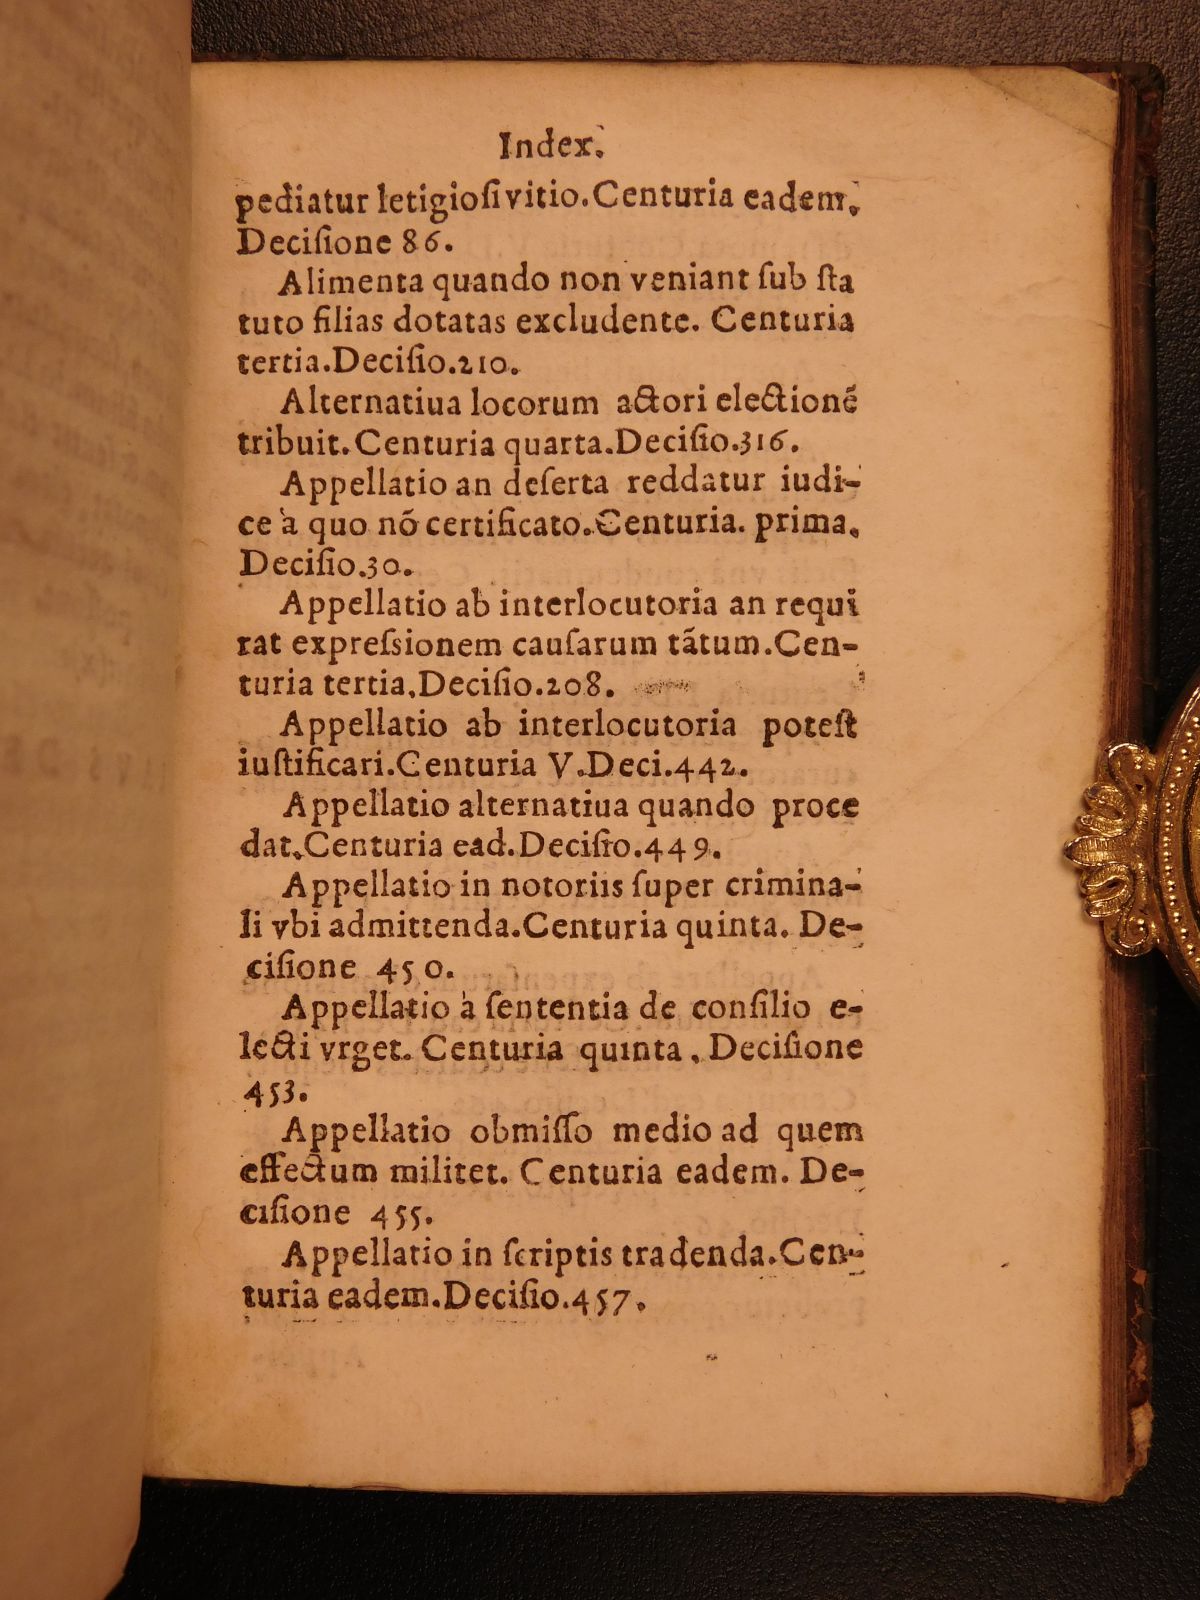 Index.
pediatur letigioſi vitio. Centuria eadem.
Deciſione 86.
Alimenta quando non veniant ſub ſta
tuto filias dotatas excludente. Centuria
tertia. Deciſio. 210.
Alternatiua locorum actori electionē
tribuit. Centuria quarta. Deciſio. 316.
Appellatio an deſerta reddatur iudi-
ce à quo nō certificato. Centuria. prima.
Deciſio. 30.
Appellatio ab interlocutoria an requi
rat expreſsionem cauſarum tãtum. Cen-
turia tertia. Deciſio. 208.
Appellatio ab interlocutoria poteſt
iuſtificari. Centuria V. Deci. 442.
Appellatio alternatiua quando proce
dat. Centuria ead. Deciſio. 449.
Appellatio in notoriis ſuper crimina-
li vbi admittenda. Centuria quinta. De-
ciſione 450.
Appellatio à ſententia de conſilio e-
lecti vrget. Centuria quinta. Deciſione
453.
Appellatio obmiſſo medio ad quem
effectum militet. Centuria eadem. De-
ciſione 455.
Appellatio in ſcriptis tradenda. Cen-
turia eadem. Deciſio. 457.